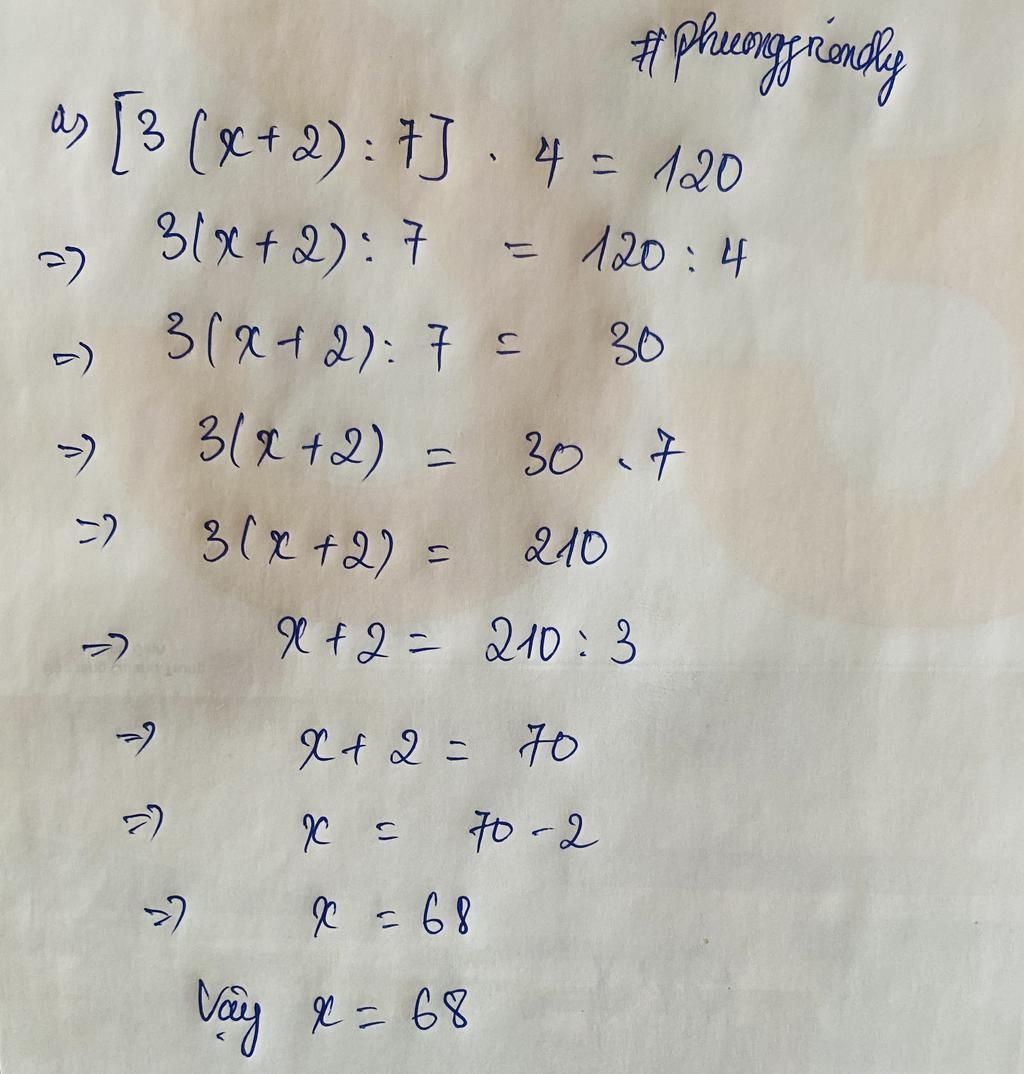 #phuongfriendly
a) [3 (x+2) : 7] . 4 = 120
=> 3(x+2) : 7 = 120 : 4
=> 3(x+2) : 7 = 30
=> 3(x+2) = 30 . 7
=> 3(x+2) = 210
=> x+2 = 210 : 3
=> x+2 = 70
=> x = 70-2
=> x = 68
Vậy x = 68